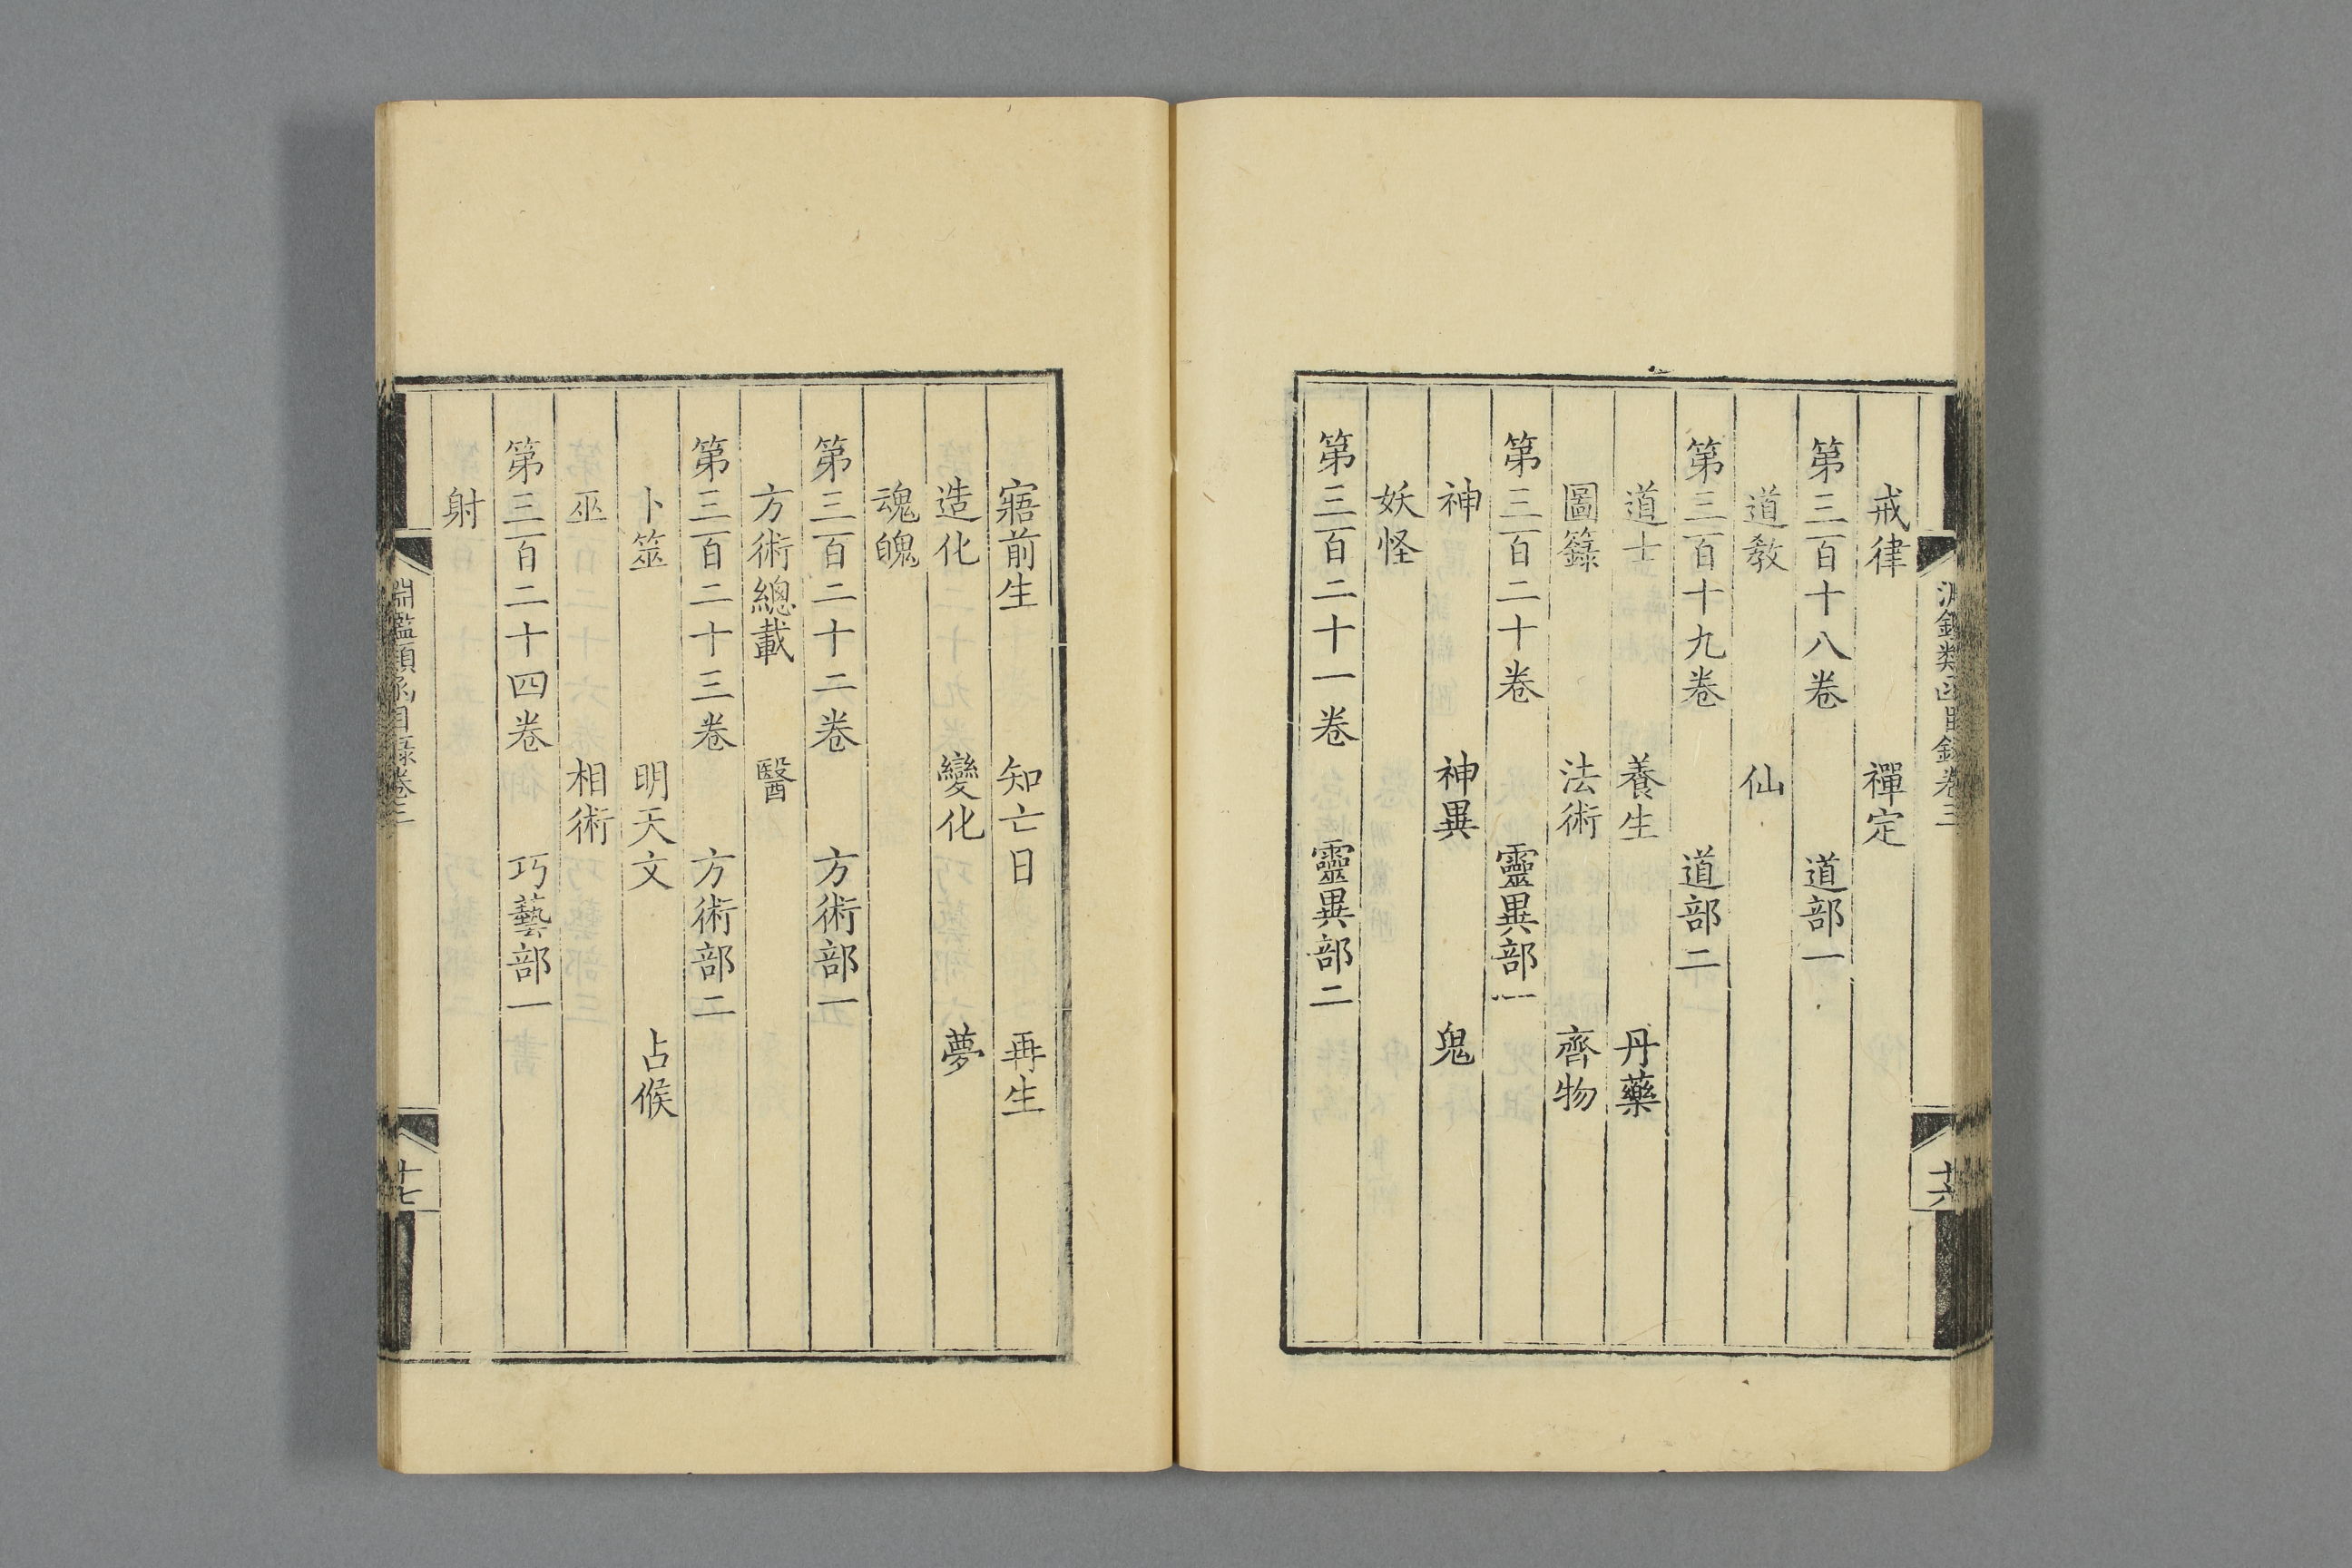 戒律 禪定
第三百十八卷 道部一
道教 仙
第三百十九卷 道部二
道士 養生 丹藥
圖籙 法術 齊物
第三百二十卷 靈異部一
神 神異 鬼
妖怪
第三百二十一卷 靈異部二
寤前生 知亡日 再生
造化 變化 夢
魂魄
第三百二十二卷 方術部一
方術總載 醫
第三百二十三卷 方術部二
卜筮 明天文 占候
巫 相術
第三百二十四卷 巧藝部一
射
淵鑑類函目錄卷三
十七